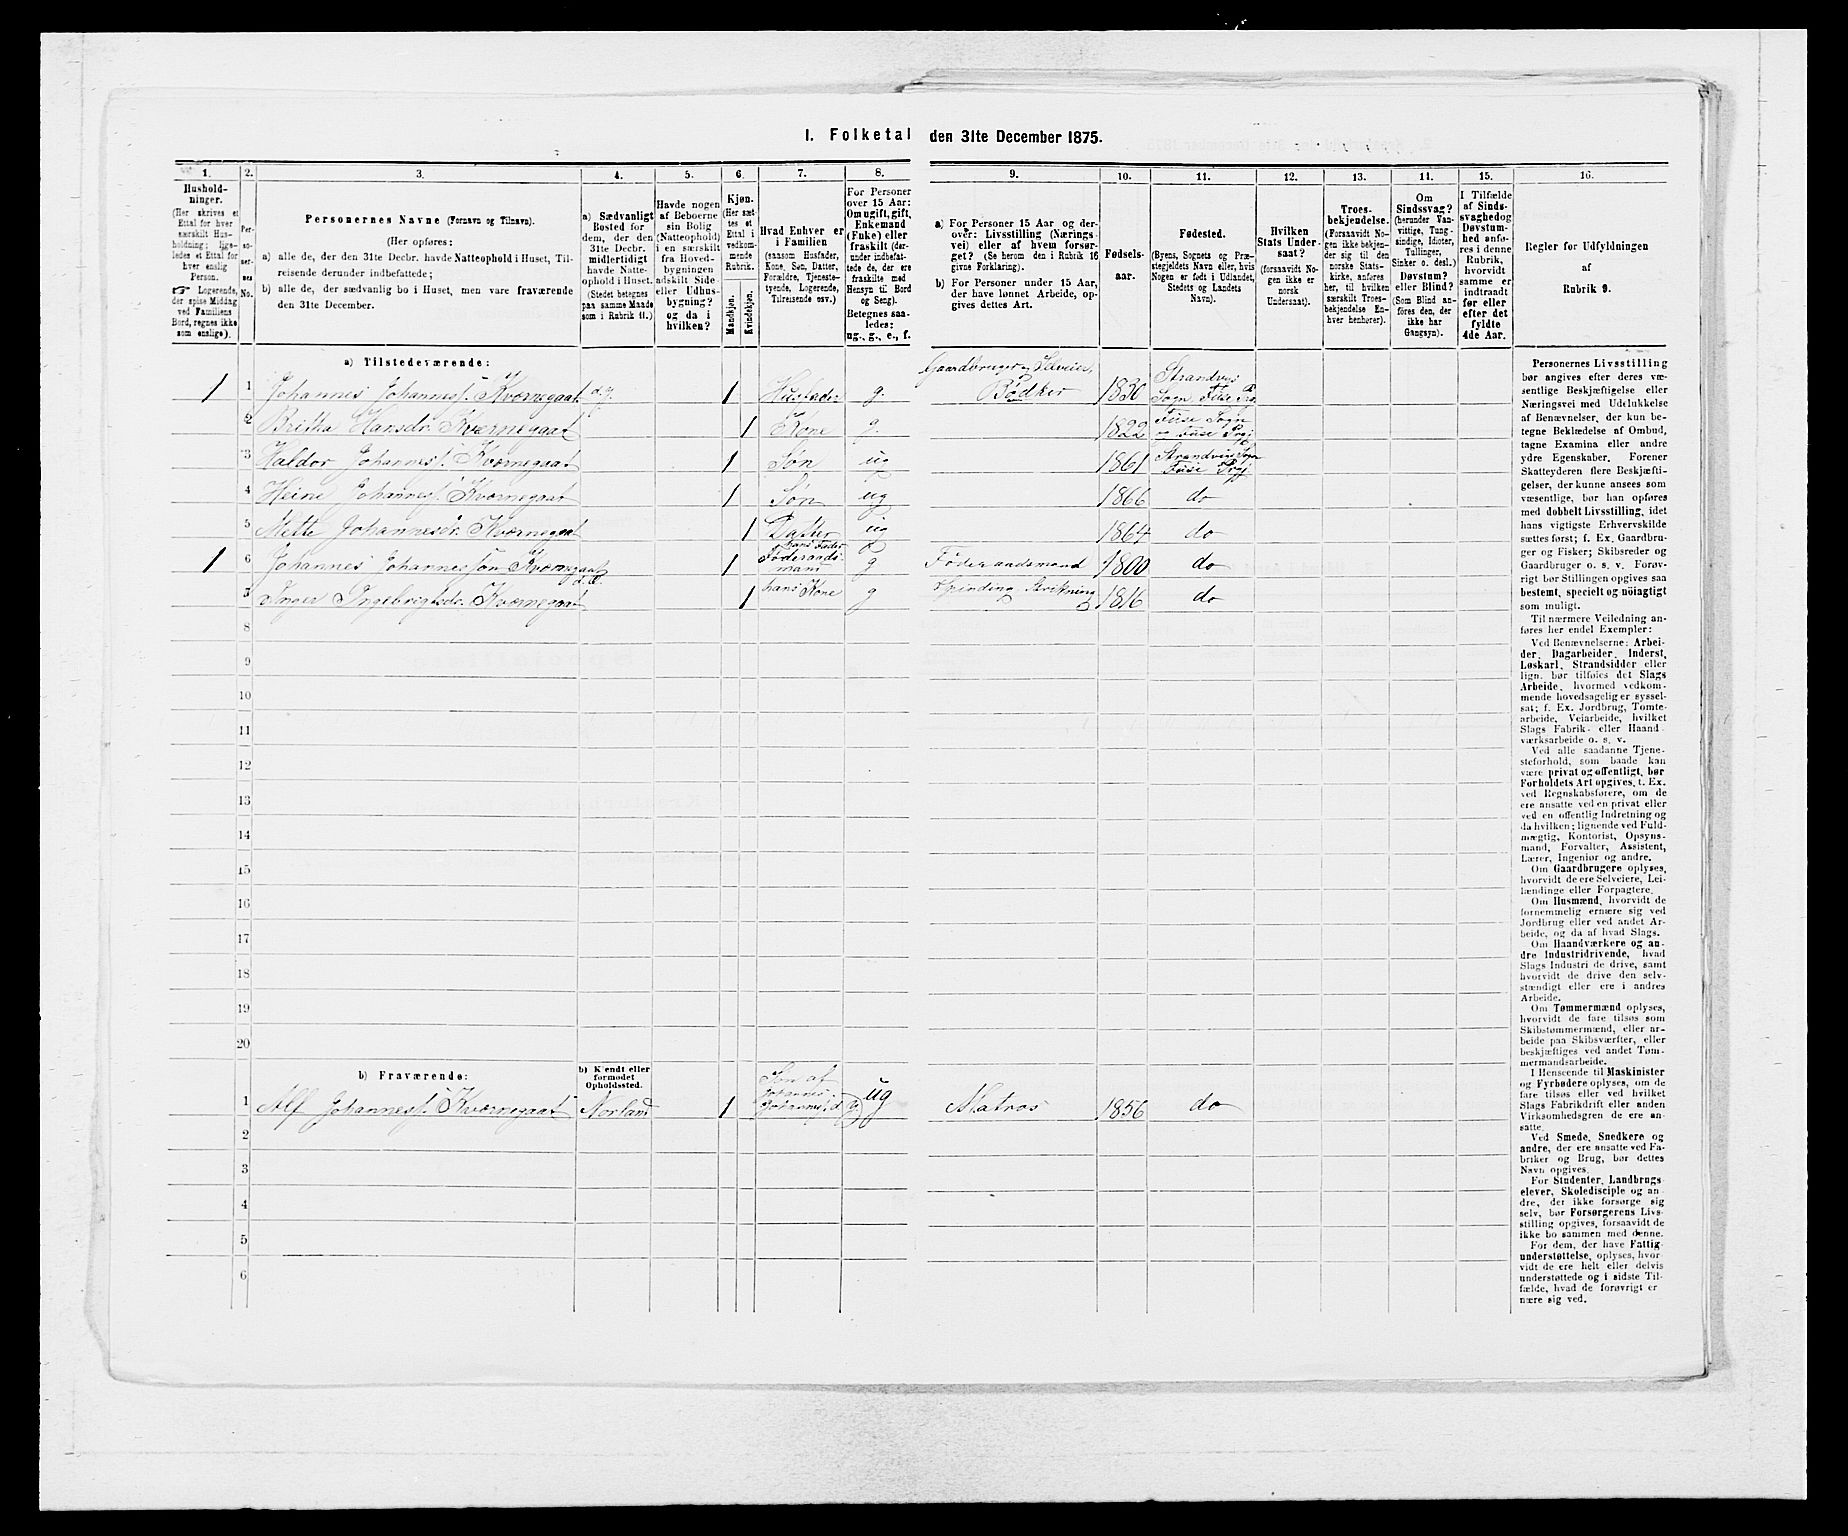 I. Folketal den 31te December 1875.
1. 2. 3. 4. 5. 6. 7. 8. 9. 10. 11. 12. 13. 14. 15. 16.
Hushold-
ninger.
(Her skrives et
Ettal for hver
særskilt Hus-
holdning; lige-
ledes et Ettal for
hver enslig
Person.
☞ Logerende,
der spise Middag
ved Familiens
Bord, regnes ikke
som enslige).
Per-
so-
ner-
nes
No.
Personernes Navne (Fornavn og Tilnavn).
(Her opføres:
a) alle de, der den 31te Decbr. havde Natteophold i Huset, Til-
reisende derunder indbefattede;
b) alle de, der sædvanlig bo i Huset, men vare fraværende
den 31te December.
a) Sædvanligt
Bosted for
dem, der den
31te Decbr.
midlertidigt
havde Natte-
ophold i Huset.
(Stedet betegnes
paa samme Maade
som i Rubrik 11.)
Havde nogen
af Beboerne
sin Bolig
(Natteophold)
i en særskilt
fra Hoved-
bygningen
adskilt Side-
eller Udhus-
bygning?
og da i
hvilken?
Kjøn.
(Her sæt-
tes et
Ettal i
vedkom-
mende
Rubrik.
Mandkjøn.
Kvindekjøn.
Hvad Enhver er
i Familien
(saasom Husfader,
Kone, Søn, Datter,
Forældre, Tjeneste-
tyende, Logerende,
Tilreisende osv.)
For Personer
over 15 Aar:
Om ugift, gift,
Enkemand
(Enke) eller
fraskilt (der-
under indbefat-
tede de, der ere
fraskilte med
Hensyn til Bord
og Seng).
Betegnes saa-
ledes:
ug., g., e., f.
a) For Personer 15 Aar og der-
over: Livsstilling (Nærings-
vei) eller af hvem forsør-
get? (Se herom den i Rubrik 16
givne Forklaring).
b) For Personer under 15 Aar,
der have lønnet Arbeide, op-
gives dettes Art.
Fødsels-
aar.
Fødested.
(Byens, Sognets og Præ-
stegjeldets Navn eller, hvis
Nogen er født i Udlandet,
Stedets og Landets
Navn).
Hvilken
Stats Under-
saat?
(forsaavidt No-
gen ikke er
norsk
Undersaat).
Troes-
bekjendelse.
(Forsaavidt No-
gen ikke bekjen-
der sig til den
norske Stats-
kirke, anføres
her, til hvilken
særskilt Troes-
bekjendelse En-
hver henhører).
Om
Sindssvag?
(herunder Van-
vittige, Tung-
sindige, Idioter,
Tullinger,
Sinker o. desl.)
Døvstum?
eller Blind?
(Som Blind an-
føres den, der
ikke har
Gangsyn).
I Tilfælde
af Sinds-
svaghed og
Døvstum-
hed anfø-
res i denne
Rubrik,
hvorvidt
samme er
indtraadt
før eller
efter det
fyldte
4de Aar.
Regler for Udfyldningen
af
Rubrik 9.
a) Tilstedeværende:
1 1 Johannes Johannes. Kværnegaat d.y. 1 Husfader g. Gaardbruger Selveier, Bødker 1830 Strandvigs Sogn Fuse
2 Britha Hansdr. Kværnegaat 1 Kone g. 1822 Fuse Sogn og Fuse Prgj
3 Haldor Johannes. Kværnegaat 1 Søn ug 1861 Strandvigs Sogn Fuse Prgj
4 Heine Johannes. Kværnegaat 1 Søn ug 1866 do
5 Mette Johannesdr. Kværnegaat 1 Datter ug 1864 do
1 6 Johannes Johannessøn Kværnegaat d.æ. 1 hans Fader Føderaadsmand g Føderaadsmand 1800 do
7 Inger Ingebrigtsdr. Kværnegaat 1 hans Kone g Spinding Strikning 1816 do
8
9
10
11
12
13
14
15
16
17
18
19
20
b) Fraværende:
b) Kjendt eller
formodet
Opholdssted.
1 Alf Johannes. Kværnegaat Norland 1 Søn af Johannes Johannes. d. y. ug Matros 1856 do
2
3
4
5
6
Personernes Livsstilling
bør angives efter deres væ-
sentlige Beskjæftigelse eller
Næringsvei med Udelukkelse
af Benævnelser, der kun be-
tegne Beklædelse af Ombud,
tagne Examina eller andre
ydre Egenskaber. Forener
Skatteyderen flere Beskjæfti-
gelser, der kunne ansees som
væsentlige, bør han opføres
med dobbelt Livsstilling, idet
hans vigtigste Erhvervskilde
sættes først; f. Ex. Gaardbru-
ger og Fisker; Skibsreder og
Gaardbruger o. s. v. Forøv-
rigt bør Stillingen opgives saa
bestemt, specielt og nöiagtigt
som muligt.
Til nærmere Veiledning an-
føres her endel Exempler:
Ved Benævnelserne: Arbei-
der, Dagarbeider, Inderst,
Løskarl, Strandsidder eller
lign. bør tilføies det Slags
Arbeide, hvormed vedkom-
mende hovedsagelig er syssel-
sat; f. Ex. Jordbrug, Tomte-
arbeide, Veiarbeide, hvilket
Slags Fabrik- eller Haand-
værksarbeide o. s. v.
Ved alle saadanne Tjene-
steforhold, som baade kan
være privat og offentligt, bør
Forholdets Art opgives, t. Ex.
ved Regnskabsførere, om de
ere ansatte ved en privat eller
ved en offentlig Indretning og
da hvilken; lignende ved Fuld-
mægtig, Kontorist, Opsyns-
mand, Forvalter, Assistent,
Lærer, Ingeniør og andre.
Om Gaardbrugere oplyses,
hvorvidt de ere Selveiere, Lei-
lændinge eller Forpagtere.
Om Husmænd, hvorvidt de
fornemmelig ernære sig ved
Jordbrug eller ved andet Ar-
beide, og da af hvad Slags.
Om Haandværkere og an-
dre Industridrivende, hvad
Slags Industri de drive, samt
hvorvidt de drive den selv-
stændigt eller ere i andres
Arbeide.
Om Tømmermænd oplyses,
hvorvidt de fare tilsøs som
Skibstømmermænd, eller ar-
beide paa Skibsværfter, eller
beskjæftiges ved andet Tøm-
mermandsarbeide.
I Henseende til Maskinister
og Fyrbødere oplyses, om de
fare tilsøs eller ved hvilket
Slags Fabrikdrift eller anden
Virksomhedsgren de ere an-
satte.
Ved Smede, Snedkere og
andre, der ere ansatte ved Fa-
briker og Brug, bør dettes
Navn opgives.
For Studenter, Landbrugs-
elever, Skoledisciple og an-
dre, der ikke forsørge sig
selv, bør Forsørgerens Livs-
stilling opgives, forsaavidt de
ikke bo sammen med denne.
For dem, der have Fattig-
understøttelse, oplyses, hvor-
vidt de ere helt eller delvis
understøttede og i sidste Til-
fælde, hvad de forøvrigt er
nære sig ved.